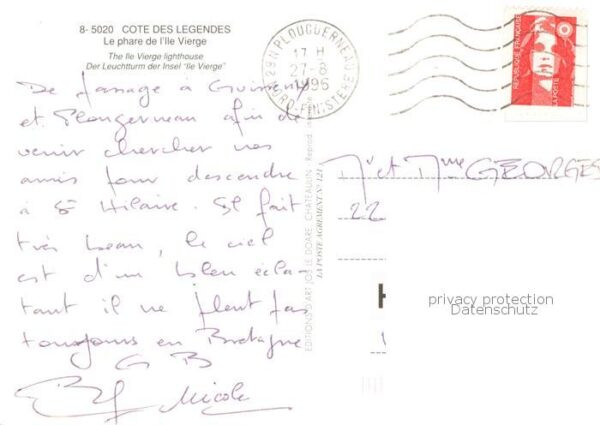 8- 5020 COTE DES LEGENDES
Le phare de l'Ile Vierge
The Ile Vierge lighthouse
Der Leuchtturm der Insel "Ile Vierge"
29 N PLOUGUERNEAU
17 H
27-8
1995
NORD-FINISTERE
REPUBLIQUE FRANÇAISE
LA POSTE
De passage à
et Plouguerneau afin de
venir chercher nos
amis pour descendre
à St Hilaire. Il fait
très beau, le ciel
est d'un bleu écla-
tant il ne pleut pas
toujours en Bretagne
G B
Nicole
EDITIONS D'ART JOS LE DOARE, CHATEAULIN - Reprod.
LA POSTE AGREMENT N° 121
Mr et Mme GEORGES
22
privacy protection
Datenschutz